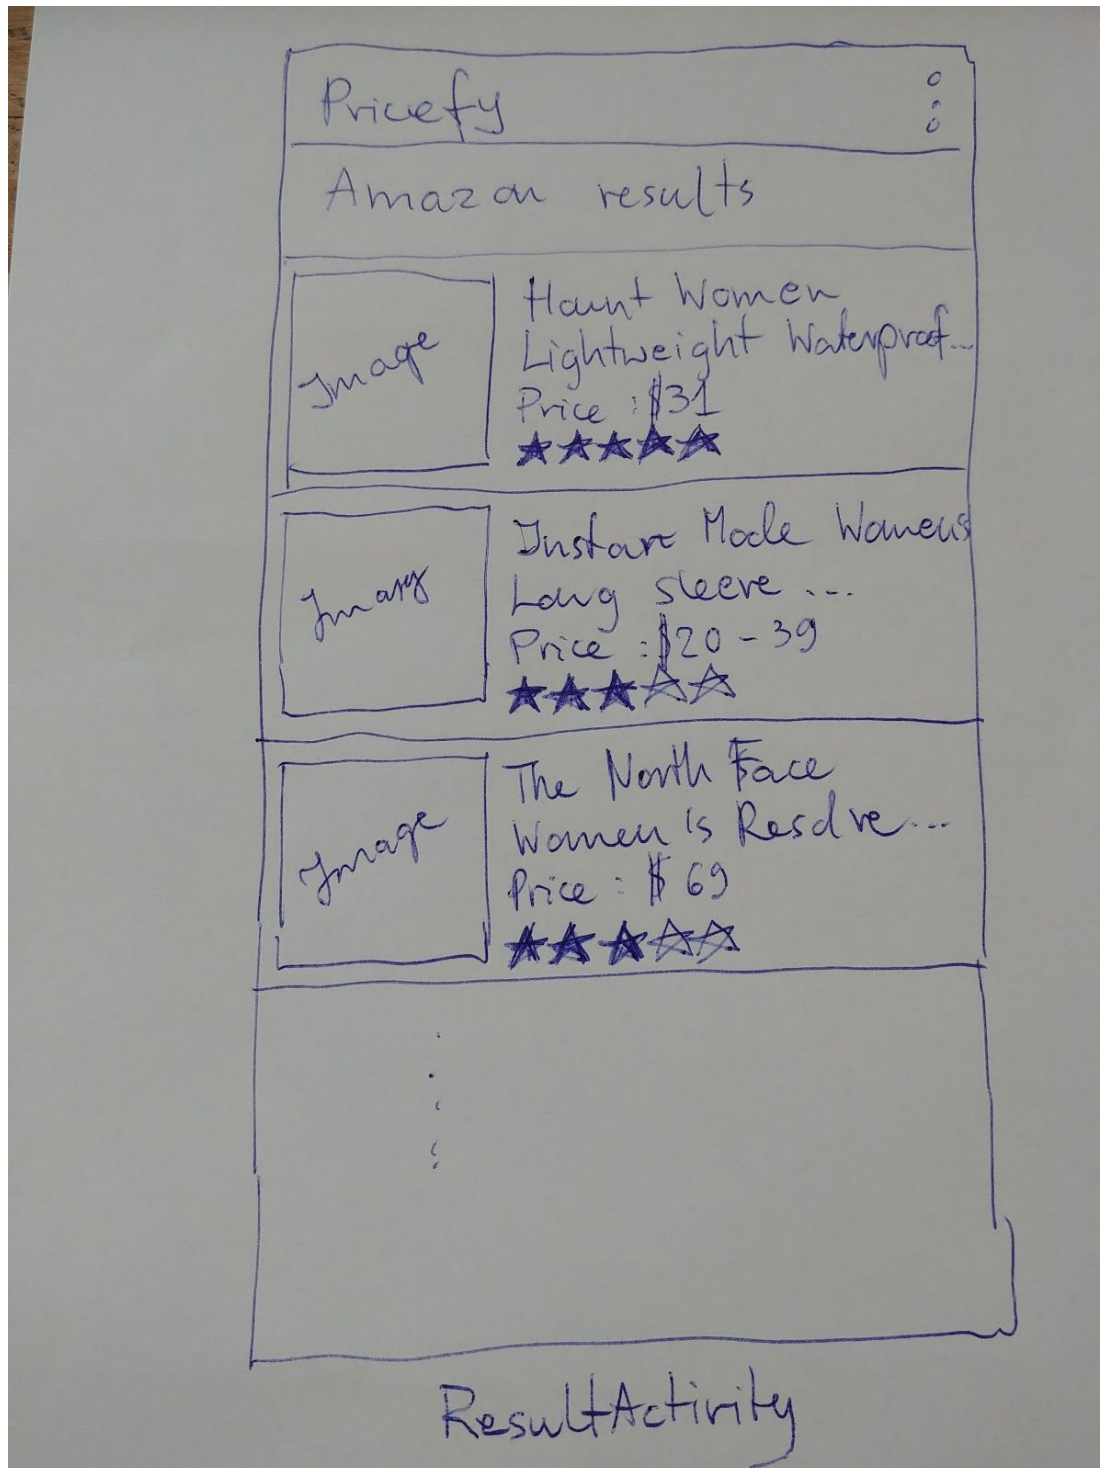 Pricefy
Amazon results
Image
Haunt Women
Lightweight Waterproof...
Price : $31
Image
Mode Womens
Long sleeve ...
Price : $20 - 39
Image
The North Face
Women's Resolve...
Price : $ 69
ResultActivity